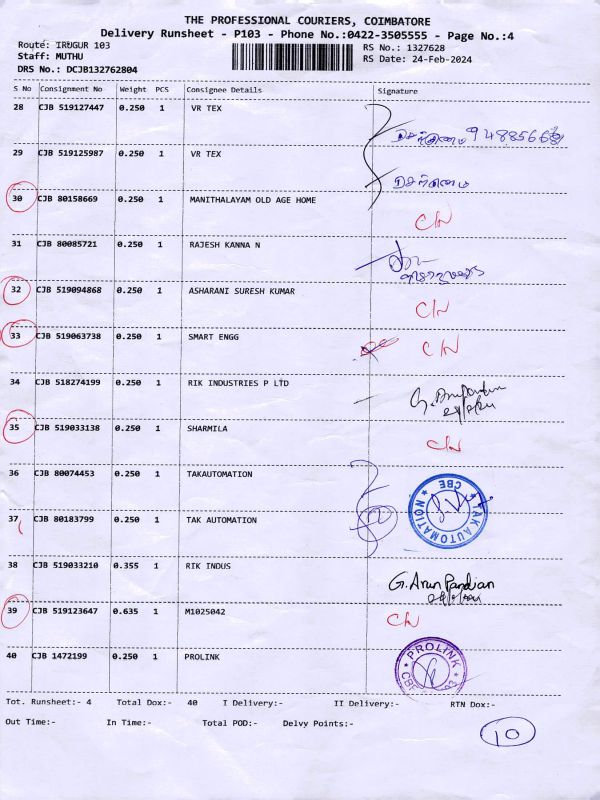 THE PROFESSIONAL COURIERS, COIMBATORE
Delivery Runsheet - P103 - Phone No.:0422-3505555 - Page No.:4
Route: IRUGUR 103 RS No.: 1327628
Staff: MUTHU RS Date: 24-Feb-2024
DRS No.: DCJB132762804
S No Consignment No Weight PCS Consignee Details Signature
28 CJB 519127447 0.250 1 VR TEX
29 CJB 519125987 0.250 1 VR TEX
30 CJB 80158669 0.250 1 MANITHALAYAM OLD AGE HOME C/N
31 CJB 80085721 0.250 1 RAJESH KANNA N
32 CJB 519094868 0.250 1 ASHARANI SURESH KUMAR C/N
33 CJB 519063738 0.250 1 SMART ENGG C/N
34 CJB 518274199 0.250 1 RIK INDUSTRIES P LTD
35 CJB 519033138 0.250 1 SHARMILA C/N
36 CJB 80074453 0.250 1 TAKAUTOMATION TAK AUTOMATION CBE
37 CJB 80183799 0.250 1 TAK AUTOMATION
38 CJB 519033210 0.355 1 RIK INDUS G. Arun Pandian
39 CJB 519123647 0.635 1 M1025042 C/N
40 CJB 1472199 0.250 1 PROLINK PROLINK
Tot. Runsheet:- 4 Total Dox:- 40 I Delivery:- II Delivery:- RTN Dox:-
Out Time:- In Time:- Total POD:- Delvy Points:-
10